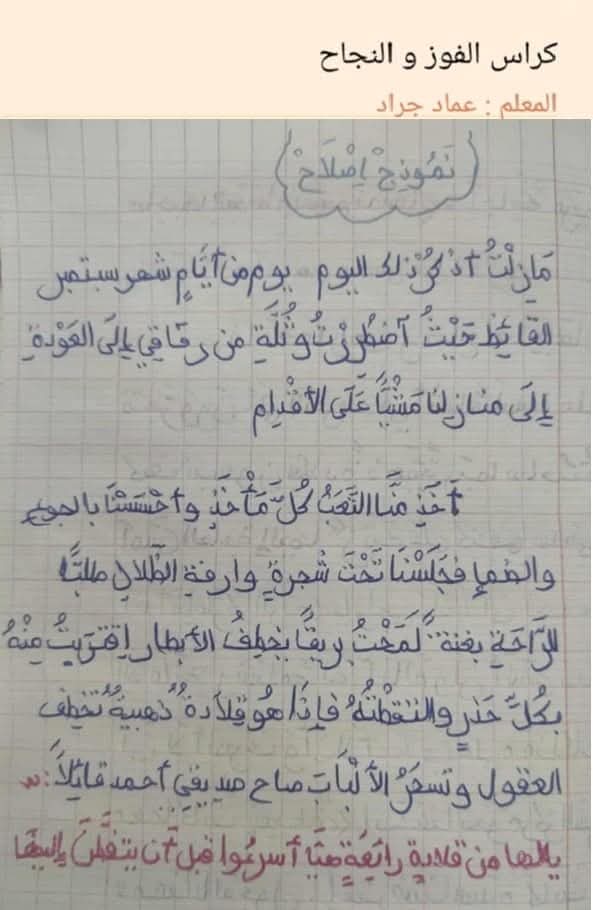 كراس الفوز و النجاح
المعلم : عماد جراد
نَمُوذِجْ إِصْلَاحْ
مَازِلْتُ أَذْكُرُ ذلك اليوم يوم من أَيَّامٍ شهر سبتمبر
القَائِظِ حَيْثُ آضْطُرِرْتُ وَثُلَّةٍ من رفاقي إِلَى العَوْدَةِ
إِلَى منازلنا مَشْيًا عَلَى الأَقْدَامِ
أَخَذَ مِنَّا التَّعَبُ كُلَّ مَأْخَذٍ وأَحْسَسْنَا بالجوع
والضمإ فَجَلَسْنَا تَحْتَ شَجرةٍ وارفةِ الظِّلالِ طلبًا
للرَّاحَةِ بغتة لَمَحْتُ بريقًا يخطِفُ الأبصار اِقتربتُ مِنْهُ
بكُلِّ حَذَرٍ والتقطْتُهُ فَإِذَا هُوَ قِلَادَةٌ ذهبيةٌ تخطف
العقول وتسحَرُ الأَلْبَابَ صاح صديقي أحمد قائلًا :"
يالها من قلادةٍ رائِعَةٍ هيَّا أسرعُوا قبل أن يتفطَّنَ إليها